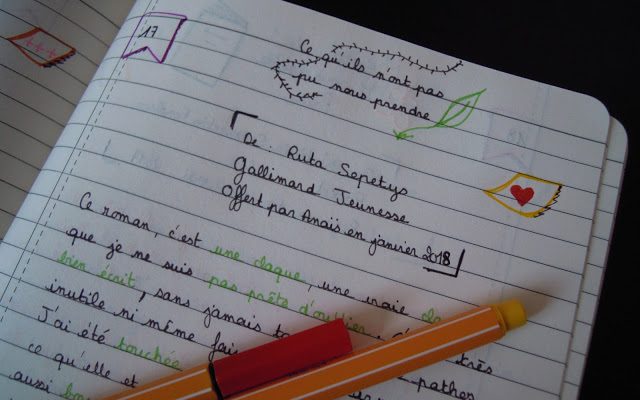 17
Ce qu'ils n'ont pas
pu nous prendre
De : Ruta Sepetys
Gallimard Jeunesse
Offert par Anaïs en janvier 2018
Ce roman, c'est une claque, une vraie
que je ne suis pas prête d'oublier
bien écrit, sans jamais très
inutile ni même
J'ai été touchée pathes
ce qu'elle et
aussi